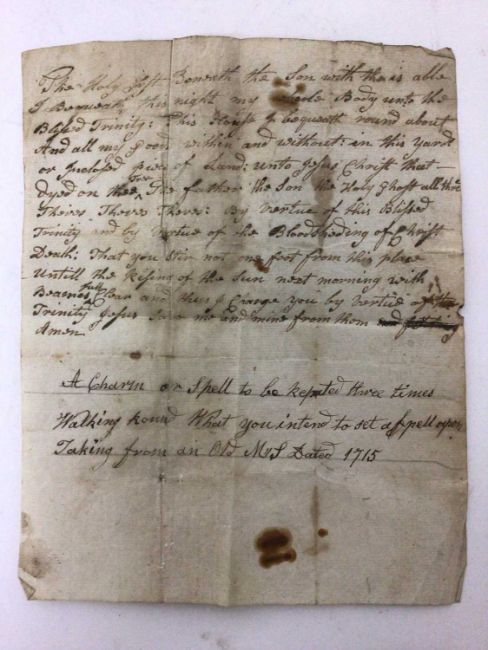 The Holy Gost Boneath the Son with the is alle
I Bequeath this night my whole Body unto the
Blessed Trinity: This House I bequeath round about
And all my Good within and without: in this Yard
or Inclosed Piece of Land: unto Jesus Christ that
Dyed on the Tree The father the Son the Holy Ghost all three
Theves Theves Theves: By Vertue of this Blessed
Trinity and by Vertue of the Bloodsheding of Christ
Death: That you Stir not one foot from this place
Untill the Rising of the Sun next morning with
Beames full Clear and thus I Charge you by Vertue of the
Trinity Jesus Save me and mine from them
Amen
A Charm or Spell to be Repeted three times
Walking Round What you intend to set a spell upon
Taking from an Old MrS Dated 1715